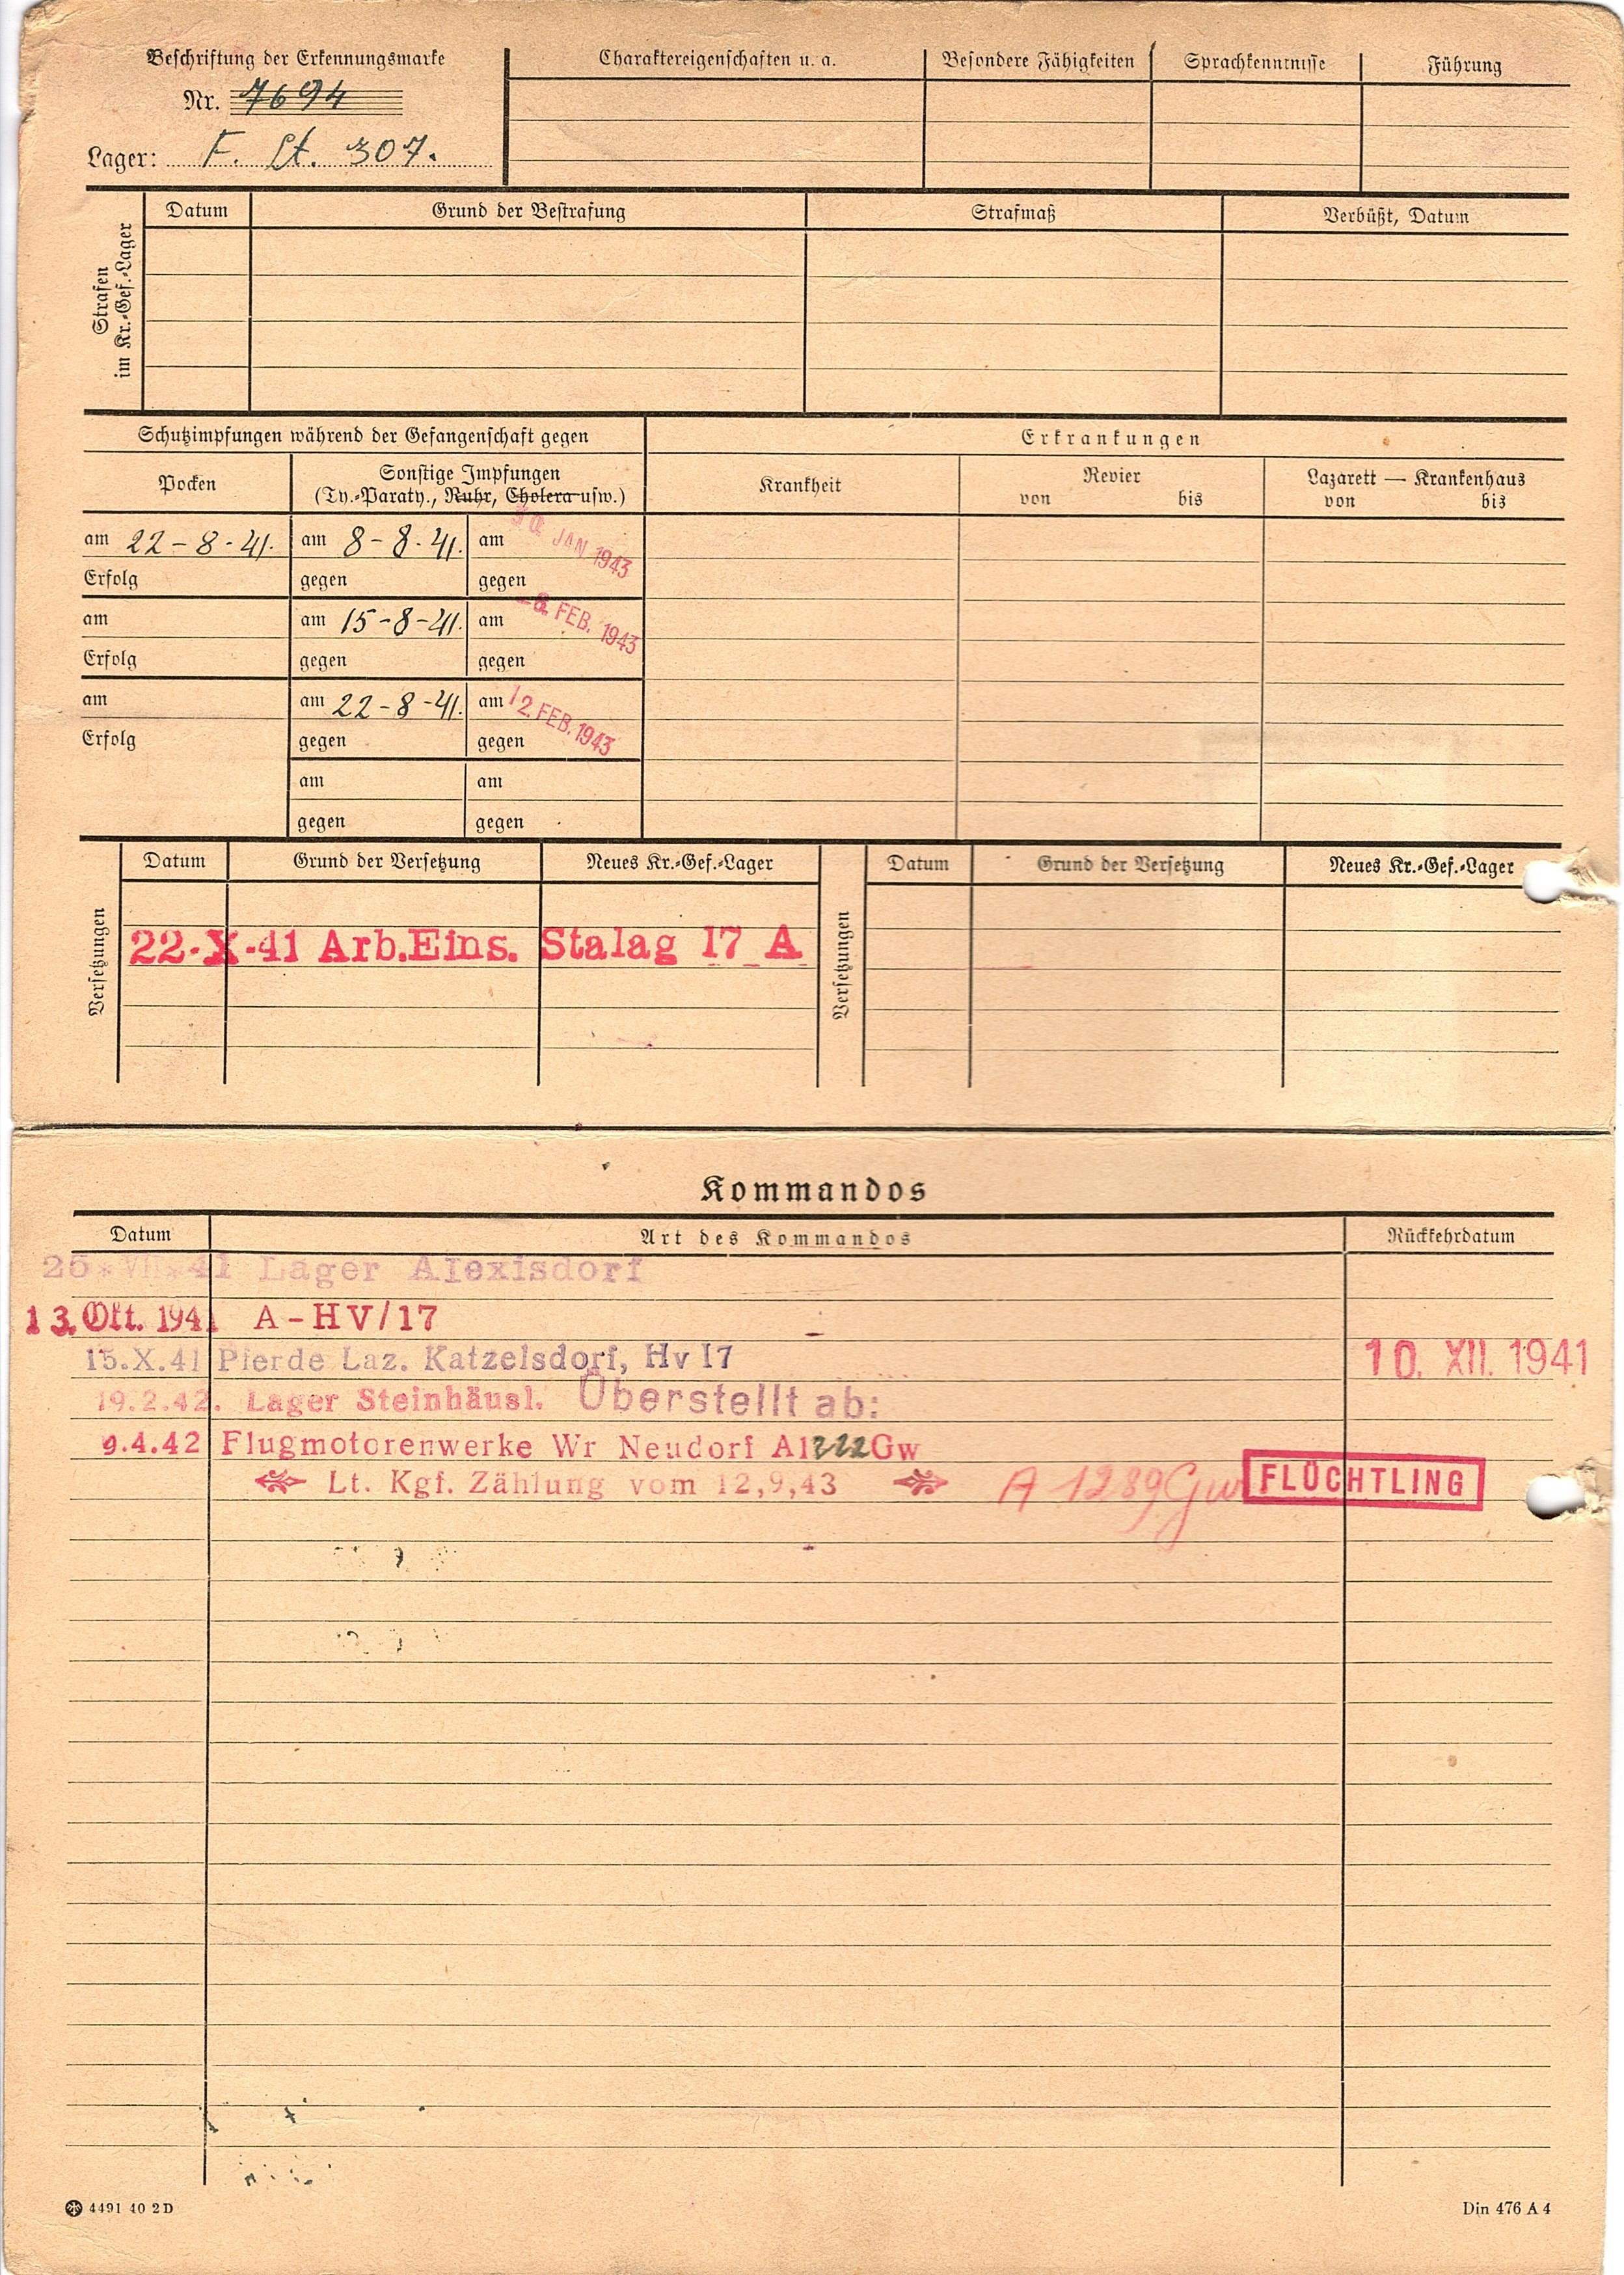 Beschriftung der Erkennungsmarke
Nr. 7694
Lager: F. St. 307.
Charaktereigenschaften u. a.
Besondere Fähigkeiten
Sprachkenntnisse
Führung
Strafen
im Kr.-Gef.-Lager
Datum
Grund der Bestrafung
Strafmaß
Verbüßt, Datum
Schutzimpfungen während der Gefangenschaft gegen
Erkrankungen
Pocken
Sonstige Impfungen
(Ty.-Paraty., Ruhr, Cholera usw.)
Krankheit
Revier
von bis
Lazarett — Krankenhaus
von bis
am 22-8-41. am 8-8-41. am 30. JAN 1943
Erfolg gegen gegen
am am 15-8-41. am FEB. 1943
Erfolg gegen gegen
am am 22-8-41. am 12. FEB. 1943
Erfolg gegen gegen
am am
gegen gegen
Versetzungen
Datum Grund der Versetzung Neues Kr.-Gef.-Lager
22-X-41 Arb.Eins. Stalag 17 A
Versetzungen
Datum Grund der Versetzung Neues Kr.-Gef.-Lager
Kommandos
Datum Art des Kommandos Rückkehrdatum
26*VII*41 Lager Alexisdorf
13. Okt. 1941 A-HV/17
15.X.41 Pferde Laz. Katzelsdorf, Hv I7 10. XII. 1941
19.2.42. Lager Steinhäusl. Überstellt ab:
9.4.42 Flugmotorenwerke Wr Neudorf A1222Gw
Lt. Kgf. Zählung vom 12,9,43 A 1289 Gw FLÜCHTLING
4491 40 2 D
Din 476 A 4